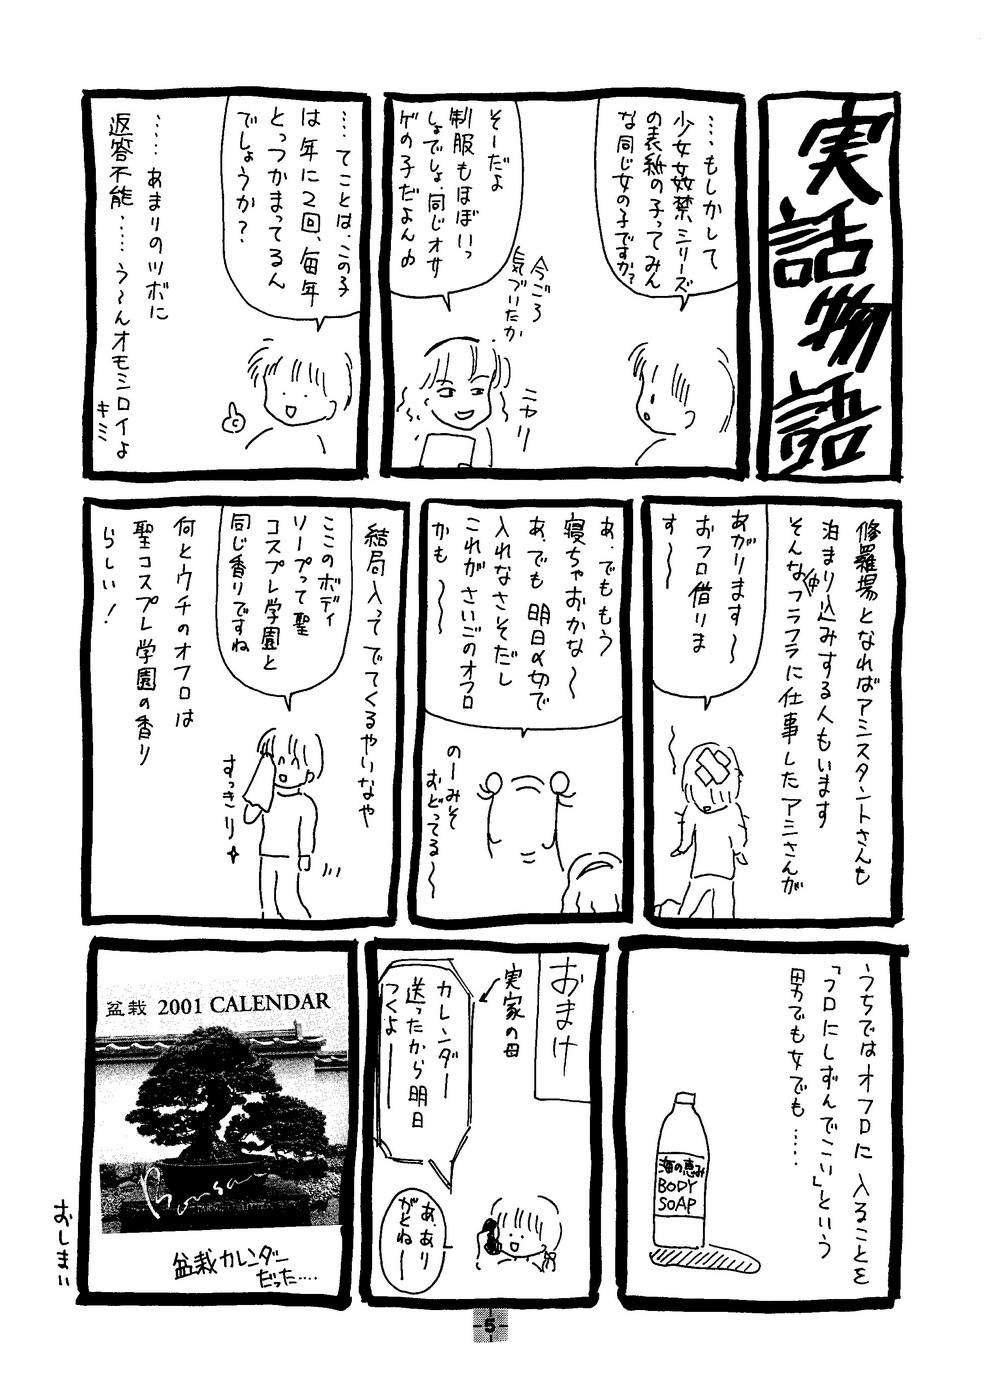 実話物語
……もしかして
少女姦禁シリーズ
の表紙の子ってみん
な同じ女の子ですか？
今ごろ
気づいたか
そーだよ
制服もほぼいっ
しょでしょ、同じオサ
ゲの子だよん♪
ニヤリ
……てことは、この子
は年に2回、毎年
とっつかまってるん
でしょうか？
……あまりのツボに
返答不能……う〜んオモシロイよ
キミ
修羅場となればアシスタントさんも
泊まり込みする人もいます
そんな(中)フラフラに仕事したアシさんが
あがります〜
おフロ借りま
す〜
あ、でももう
寝ちゃおかな〜
あ、でも明日〆切で
入れなさそだし
これがさいごのオフロ
かも〜〜
のーみそ
おどってる〜
結局入ってでてくるやいなや
ここのボディ
ソープって聖
コスプレ学園と
同じ香りですね
すっきり
何とウチのオフロは
聖コスプレ学園の香り
らしい！
うちではオフロに入ることを
「フロにしずんでこい」という
男でも女でも……
海の恵み
BODY
SOAP
おまけ
実家の母
カレンダー
送ったから明日
つくよーー
あ、あり
がとねー
盆栽 2001 CALENDAR
Bonsai
盆栽カレンダー
だった……
おしまい
5